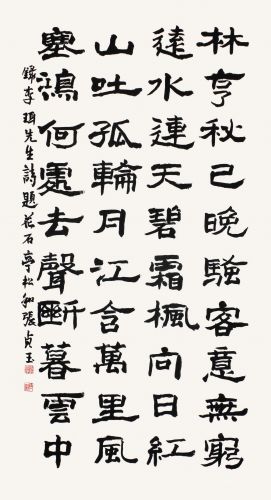 林亭秋已晚騷客意無窮
遠水連天碧霜楓向日紅
山吐孤輪月江含萬里風
塞鴻何處去聲斷暮雲中
錄李珥先生詩題花石亭松張貞玉